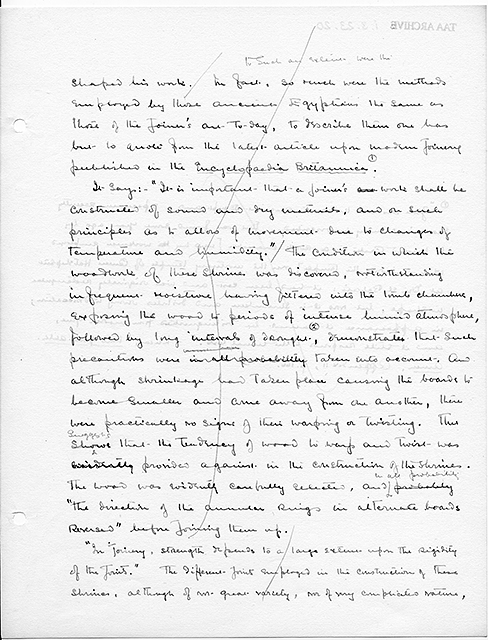 TAA ARCHIVE 1.3.23.20
to such an extent were the
shaped his work. In fact, so much were the methods
employed by those ancient Egyptians the same as
those of the Joiner's art to-day, to describe them one has
but to quote from the latest article upon modern Joinery
published in the Encyclopædia Britannica. ①
It says:- "It is important that a joiner's work shall be
constructed of sound and dry materials, and on such
principles as to allow of movement due to changes of
temperature and humidity." / The condition in which the
woodwork of these Shrines was discovered, notwithstanding
infrequent moisture having filtered into the tomb chambers,
exposing the wood to periods of intense humid atmosphere,
followed by long intervals of drought ②, demonstrates that such
precautions were in all probability taken into account. And
although shrinkage had taken place causing the boards to
become smaller and come away from one another, there
were practically no signs of their warping or twisting. This
suggests
shows that the tendency of wood to warp and twist was
evidently provided against in the construction of the Shrines.
in all probability
The wood was evidently carefully selected, and probably
"the direction of the annular rings in alternate boards
Reversed" before joining them up.
"In Joinery, strength depends to a large extent upon the rigidity
of the joint." The different joints employed in the construction of these
Shrines, although of no great variety, nor of very complicated nature,